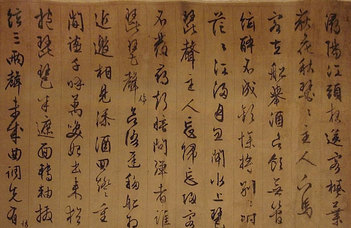 潯陽江頭夜送客楓葉
荻花秋瑟〻主人下馬
客在船舉酒欲飲無管
絃醉不成歡慘將別〻時
茫〻江浸月忽聞水上琵
琶聲主人忘歸客
不發尋聲暗問彈者誰
琵琶聲停欲語遲移船相
近邀相見添酒回燈重
開筵千呼萬喚始出來猶
抱琵琶半遮面轉軸撥
絃三兩聲未成曲調先有情